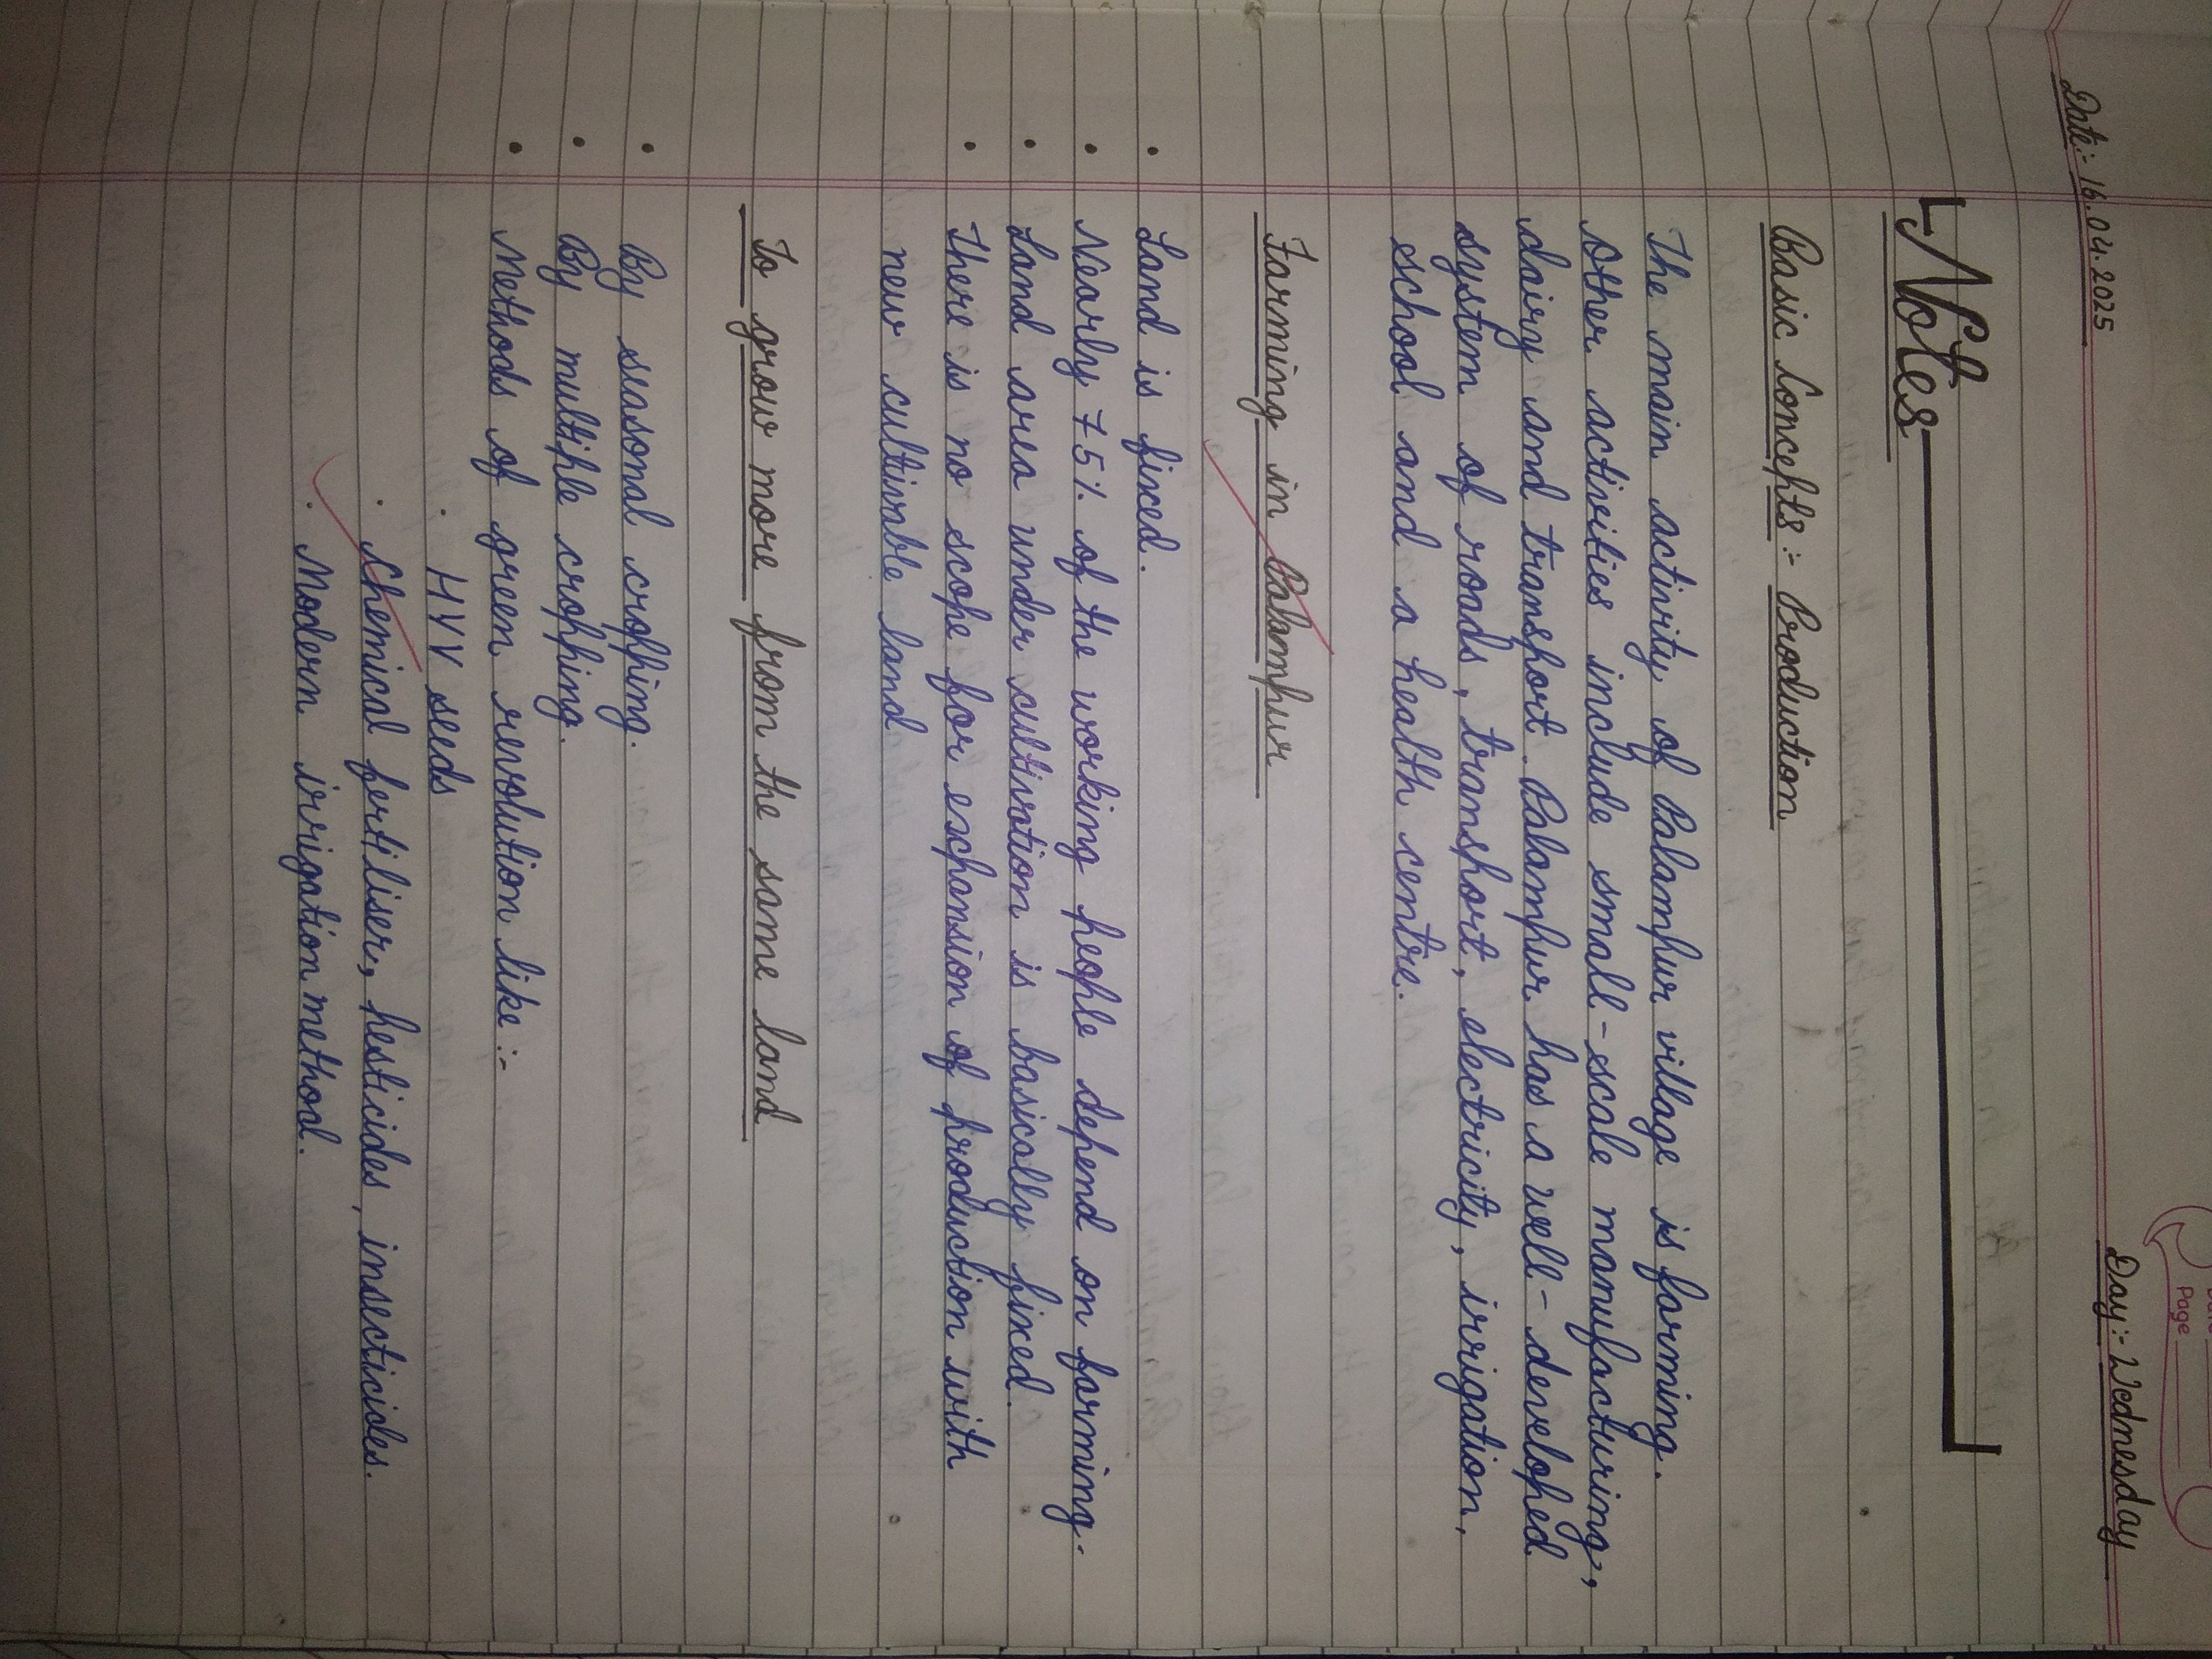 Page
Date:- 16.04.2025 Day:- Wednesday
Notes
Basic Concepts:- Production
The main activity of Palampur village is farming.
Other activities include small-scale manufacturing,
dairy and transport. Palampur has a well-developed
system of roads, transport, electricity, irrigation,
school and a health centre.
Farming in Palampur
• Land is fixed.
• Nearly 75% of the working people depend on farming.
• Land area under cultivation is basically fixed.
• There is no scope for expansion of production with
new cultivable land
To grow more from the same land
• By seasonal cropping.
• By multiple cropping.
• Methods of green revolution like:-
. HYV seeds
. Chemical fertiliser, pesticides, insecticides.
. Modern irrigation method.